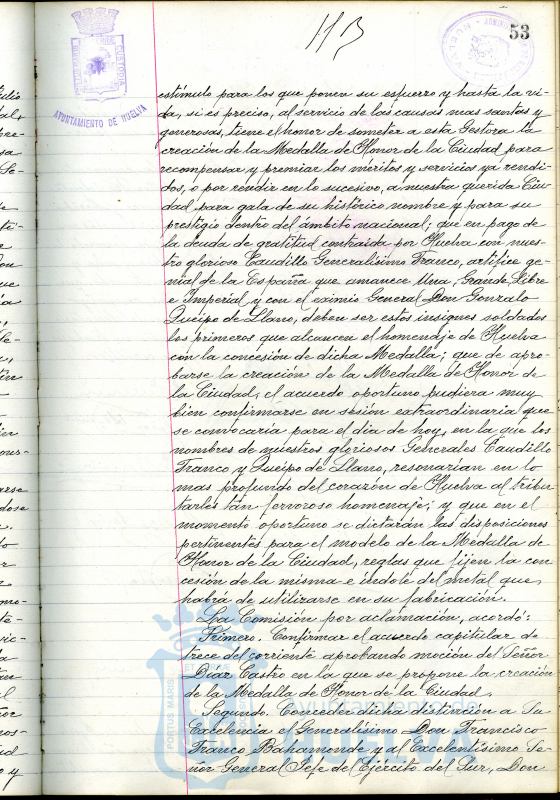 113
53
AYUNTAMIENTO DE HUELVA
estímulo para los que ponen su esfuerzo y hasta la vi-
da, si es preciso, al servicio de las causas mas santas y
generosas, tiene el honor de someter a esta Gestora la
creación de la Medalla de Honor de la Ciudad para
recompensar y premiar los méritos y servicios ya rendi-
dos, o por rendir en lo sucesivo, a nuestra querida Ciu-
dad para gala de su histórico nombre y para su
prestigio dentro del ámbito nacional; que en pago de
la deuda de gratitud contraida por Huelva con nues-
tro glorioso Caudillo Generalísimo Franco, artífice ge-
nial de la España que amanece Una, Grande, Libre
e Imperial y con el eximio General Don Gonzalo
Queipo de Llano, deben ser estos insignes soldados
los primeros que alcancen el homenaje de Huelva
con la concesión de dicha Medalla; que de apro-
barse la creación de la Medalla de Honor de
la Ciudad, el acuerdo oportuno pudiera muy
bien confirmarse en sesión extraordinaria que
se convocaría para el dia de hoy, en la que los
nombres de nuestros gloriosos Generales Caudillo
Franco y Queipo de Llano, resonarian en lo
mas profundo del corazón de Huelva al tribu-
tarles tan fervoroso homenaje; y que en el
momento oportuno se dictarán las disposiciones
pertinentes para el modelo de la Medalla de
Honor de la Ciudad, reglas que fijen la con-
cesión de la misma e índole del metal que
habrá de utilizarse en su fabricación.
La Comisión por aclamación, acordó:
Primero. Confirmar el acuerdo capitular de
trece del corriente aprobando moción del Señor
Diaz Castro en la que se propone la creación
de la Medalla de Honor de la Ciudad.
Segundo. Conceder dicha distinción a Su
Excelencia el Generalísimo Don Francisco
Franco Bahamonde y al Excelentísimo Se-
ñor General Jefe del Ejército del Sur, Don
PORTUS MARIS
Ayuntamiento de
HUELVA